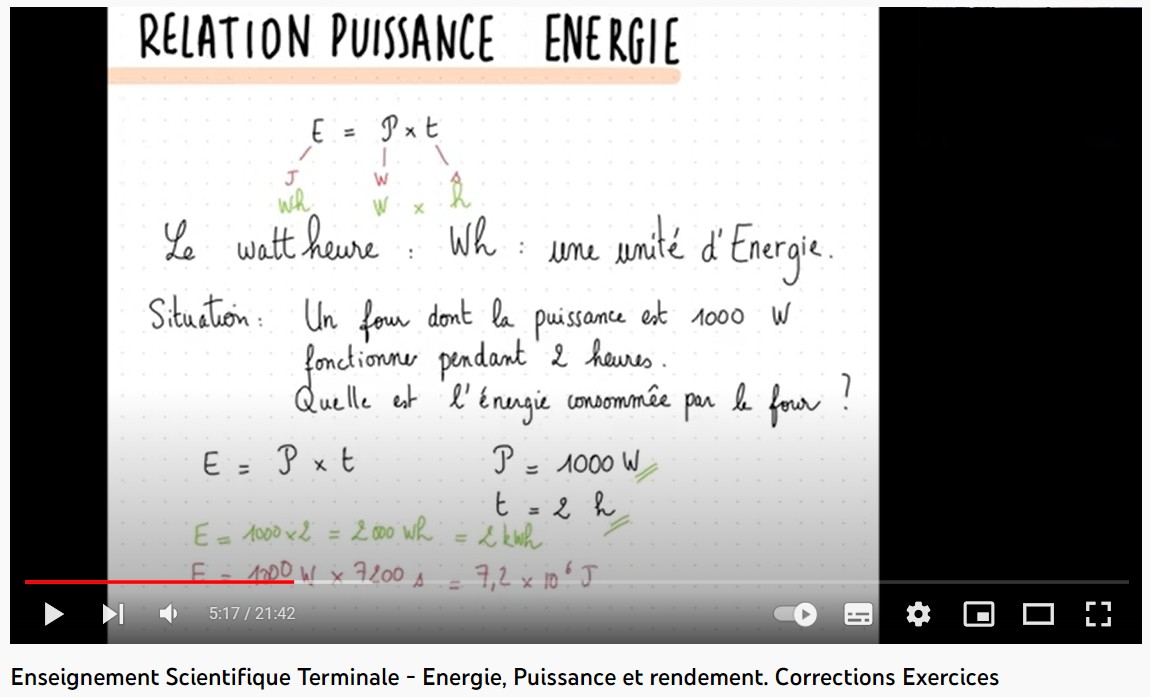 RELATION PUISSANCE ENERGIE
E = P x t
J W s
Wh W x h
Le watt heure : Wh : une unité d'Energie.
Situation : Un four dont la puissance est 1000 W
fonctionne pendant 2 heures.
Quelle est l'énergie consommée par le four ?
E = P x t P = 1000 W
t = 2 h
E = 1000 x 2 = 2000 Wh = 2 kWh
E = 1000 W x 7200 s = 7,2 x 10⁶ J
5:17 / 21:42
Enseignement Scientifique Terminale - Energie, Puissance et rendement. Corrections Exercices